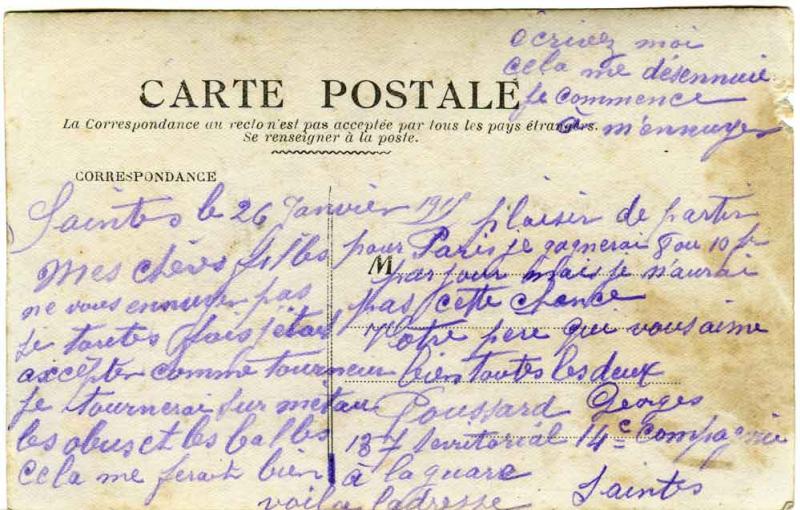 écrivez moi
cela me désennuie
je commence
à m'ennuyer
CARTE POSTALE
La Correspondance au recto n'est pas acceptée par tous les pays étrangers.
Se renseigner à la poste.
CORRESPONDANCE
Saintes le 26 Janvier 1915
Mes chères filles
ne vous ennuyer pas
je toutes fois j'étais
accepter comme tourneur
je tournerai sur métau
les obus et les balles
cela me ferait bien
plaisir de partir
pour Paris je gagnerai 8 ou 10 fr
M
par jour mais je n'aurai
pas cette chance
Votre pere qui vous aime
bien toutes les deux
Poussard Georges
137 territorial 14e compagnie
à la guare
Saintes
voila l'adresse